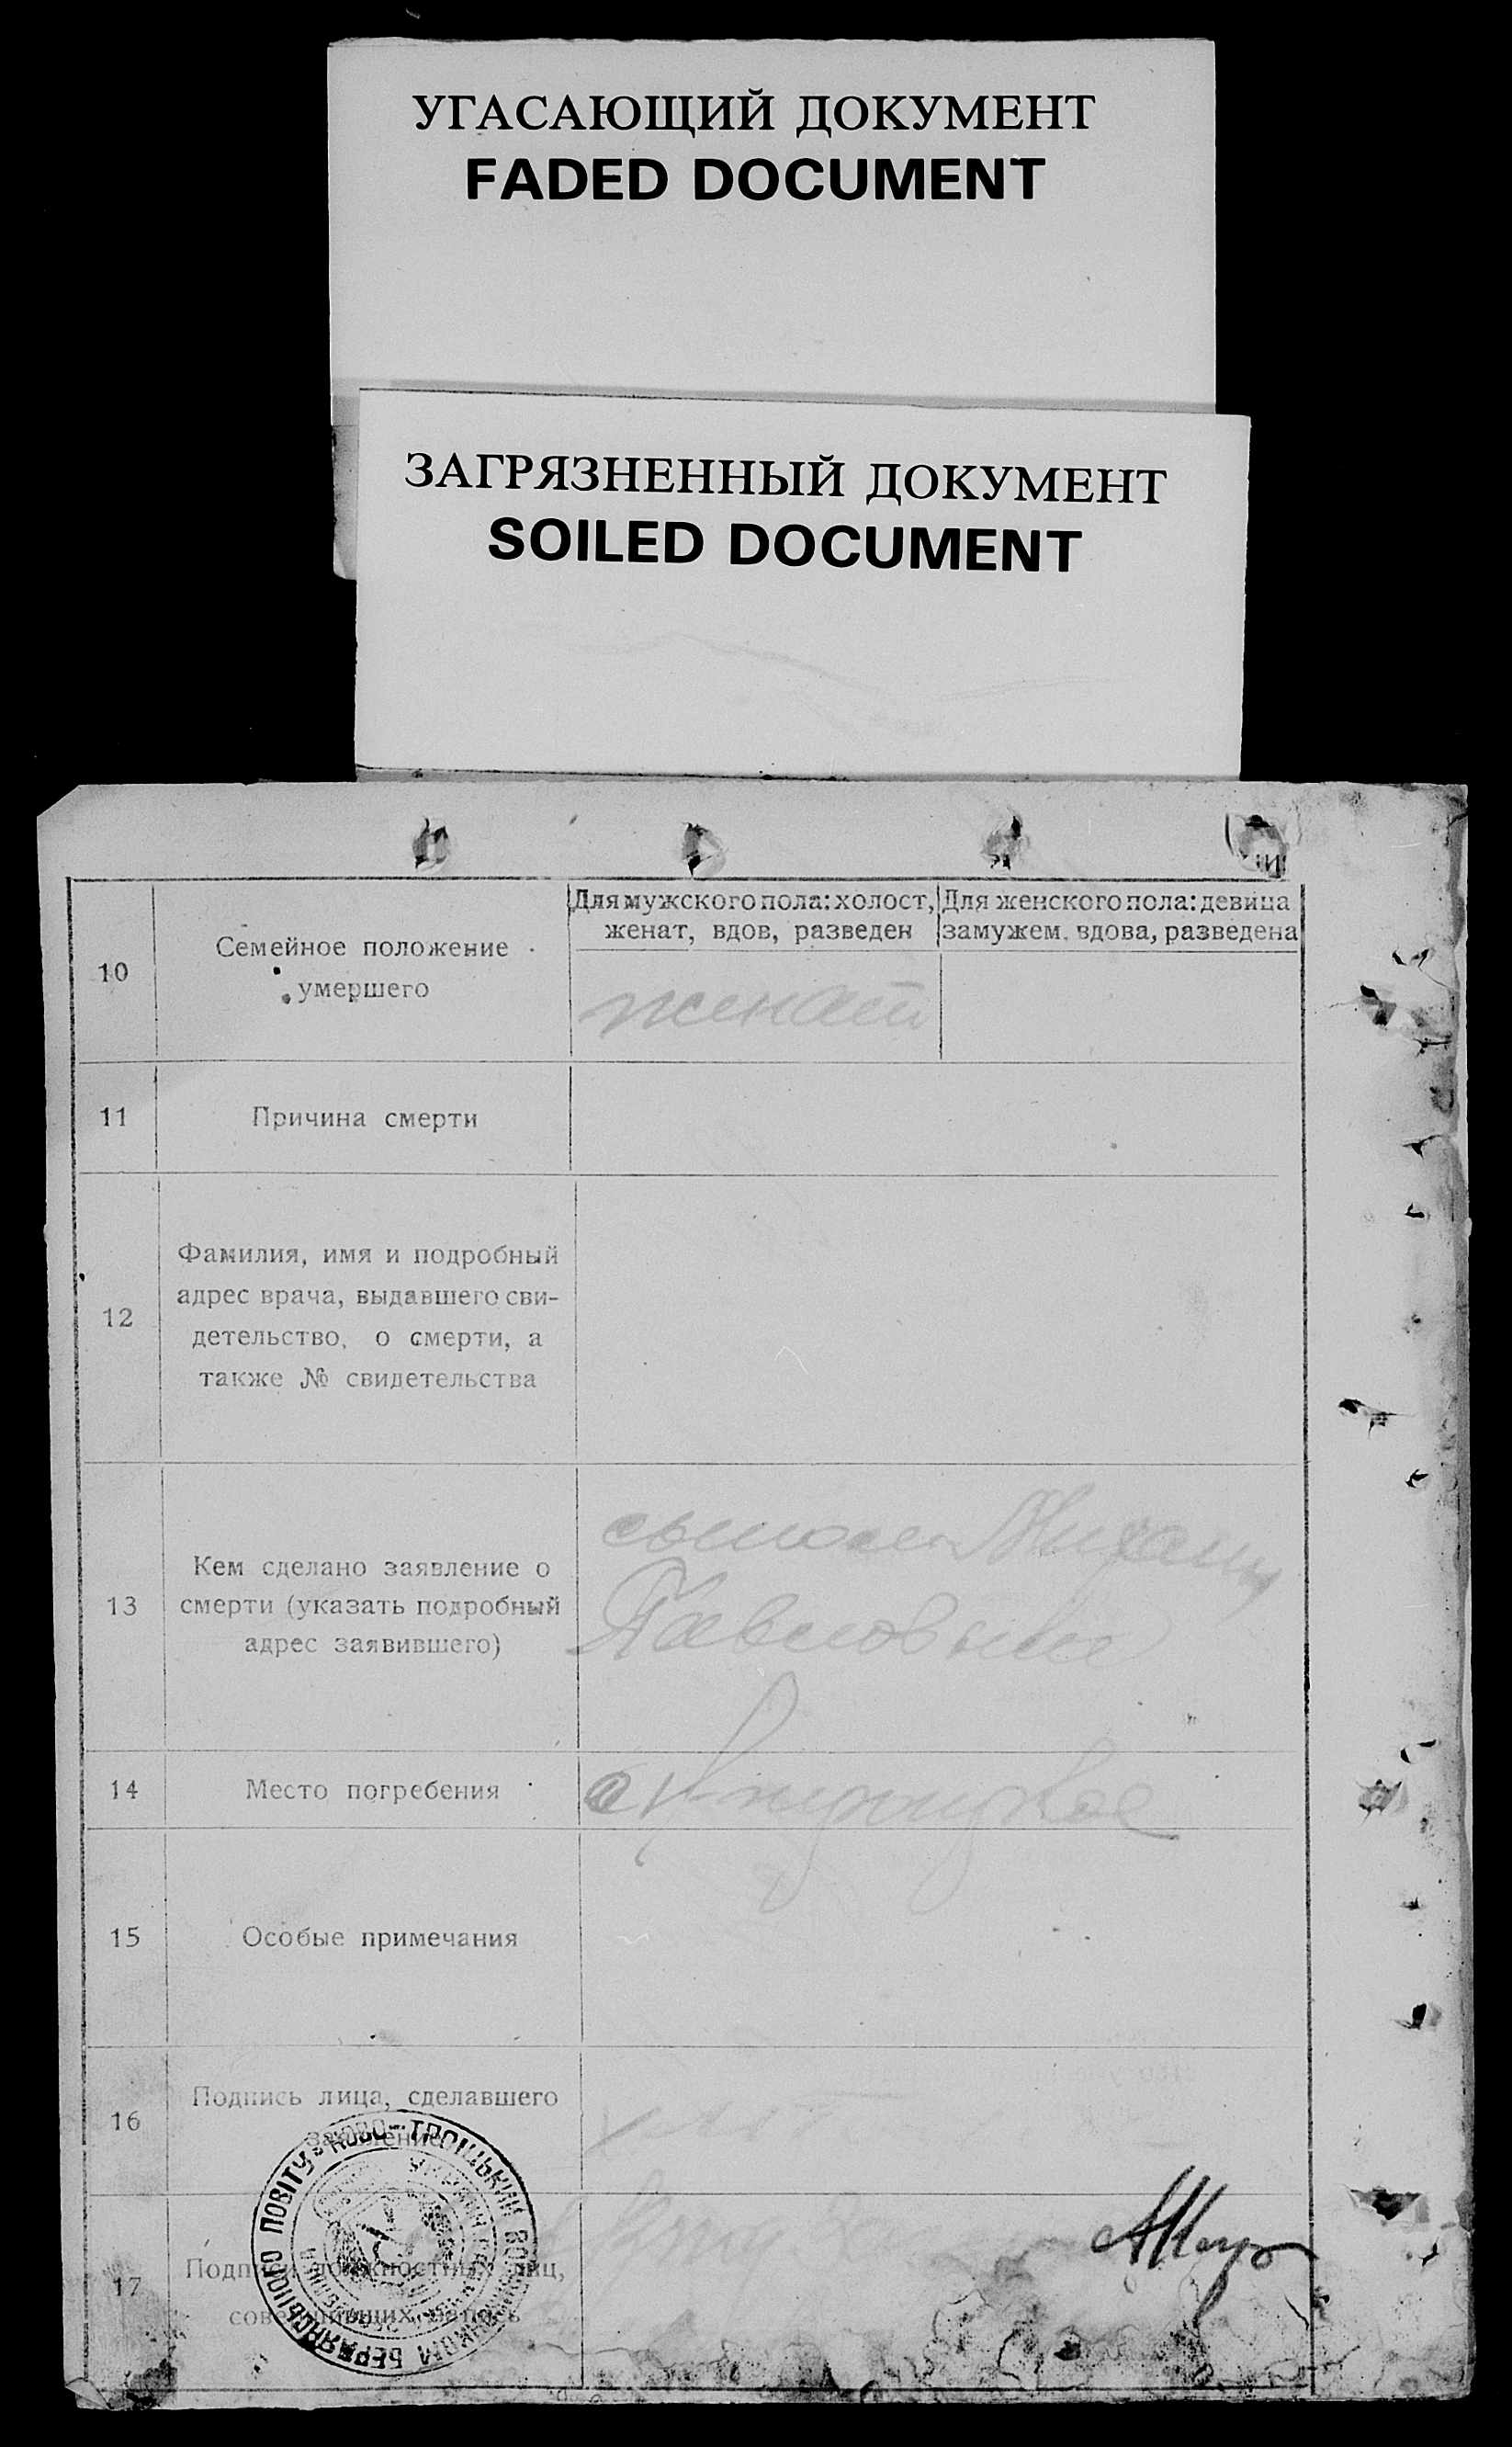 УГАСАЮЩИЙ ДОКУМЕНТ
FADED DOCUMENT
ЗАГРЯЗНЕННЫЙ ДОКУМЕНТ
SOILED DOCUMENT
10
Семейное положение
умершего
Для мужского пола: холост,
женат, вдов, разведен
Для женского пола: девица
замужем, вдова, разведена
женат
11
Причина смерти
12
Фамилия, имя и подробный
адрес врача, выдавшего сви-
детельство, о смерти, а
также № свидетельства
13
Кем сделано заявление о
смерти (указать подробный
адрес заявившего)
сыном
Павловым
14
Место погребения
15
Особые примечания
16
Подпись лица, сделавшего
заявление
17
Подписи должностных лиц,
совершивших запись
БЕРДЯНСЬКОГО ПОВІТУ